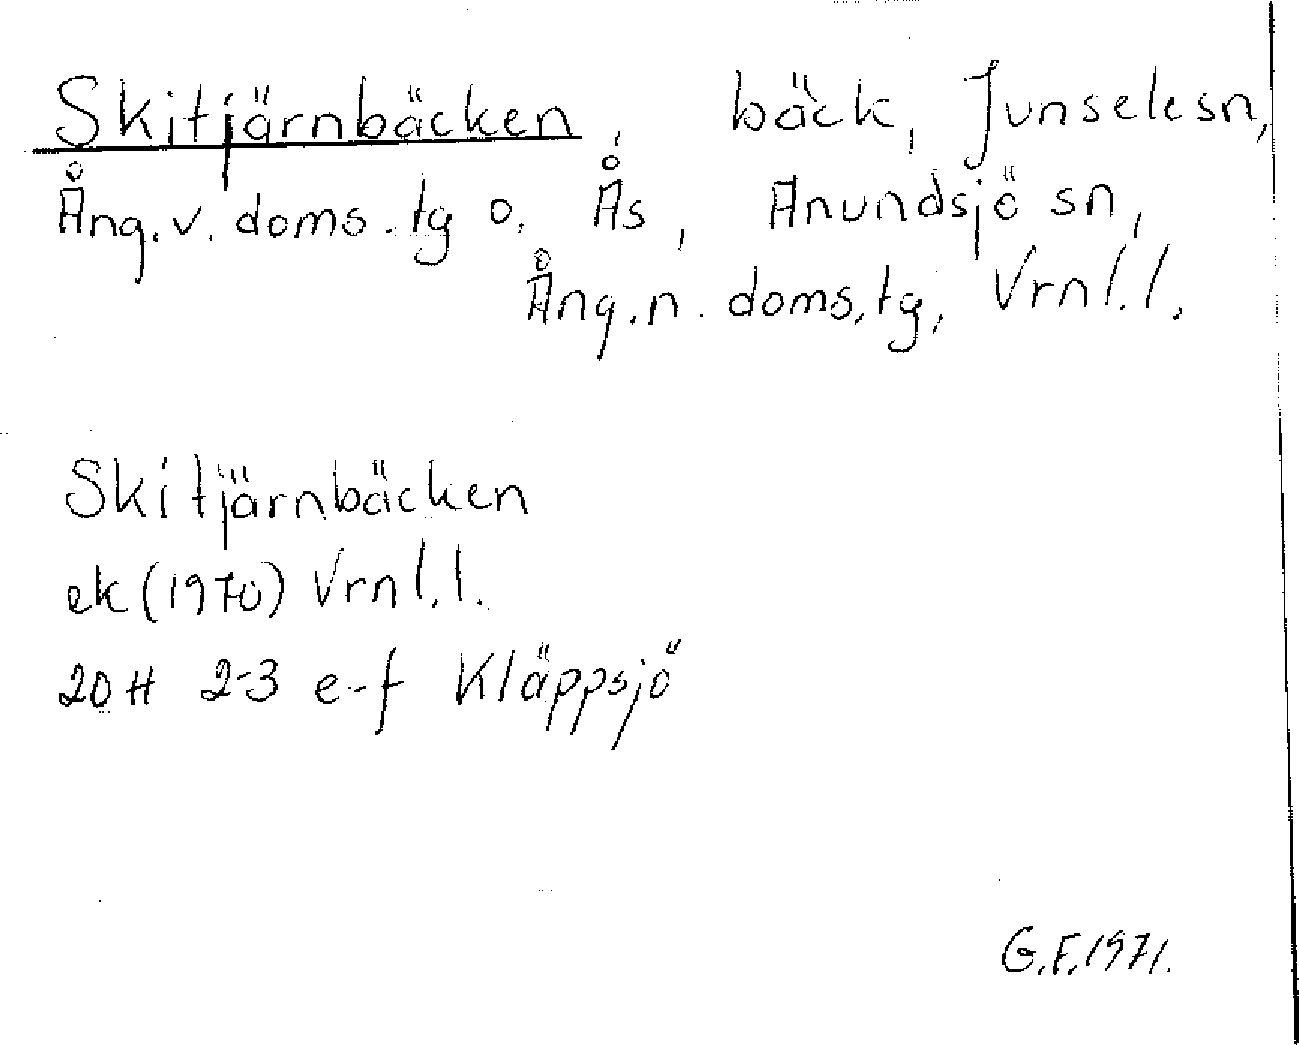 Skitjärnbäcken, bäck, Junselesn,
Ång.v. doms.tg o. Ås, Anundsjö sn,
Ång.n. doms.tg, Vrnl.l.
Skitjärnbäcken
ek (1970) Vrnl.l.
20H 2-3 e-f Kläppsjö
G.F.1971.